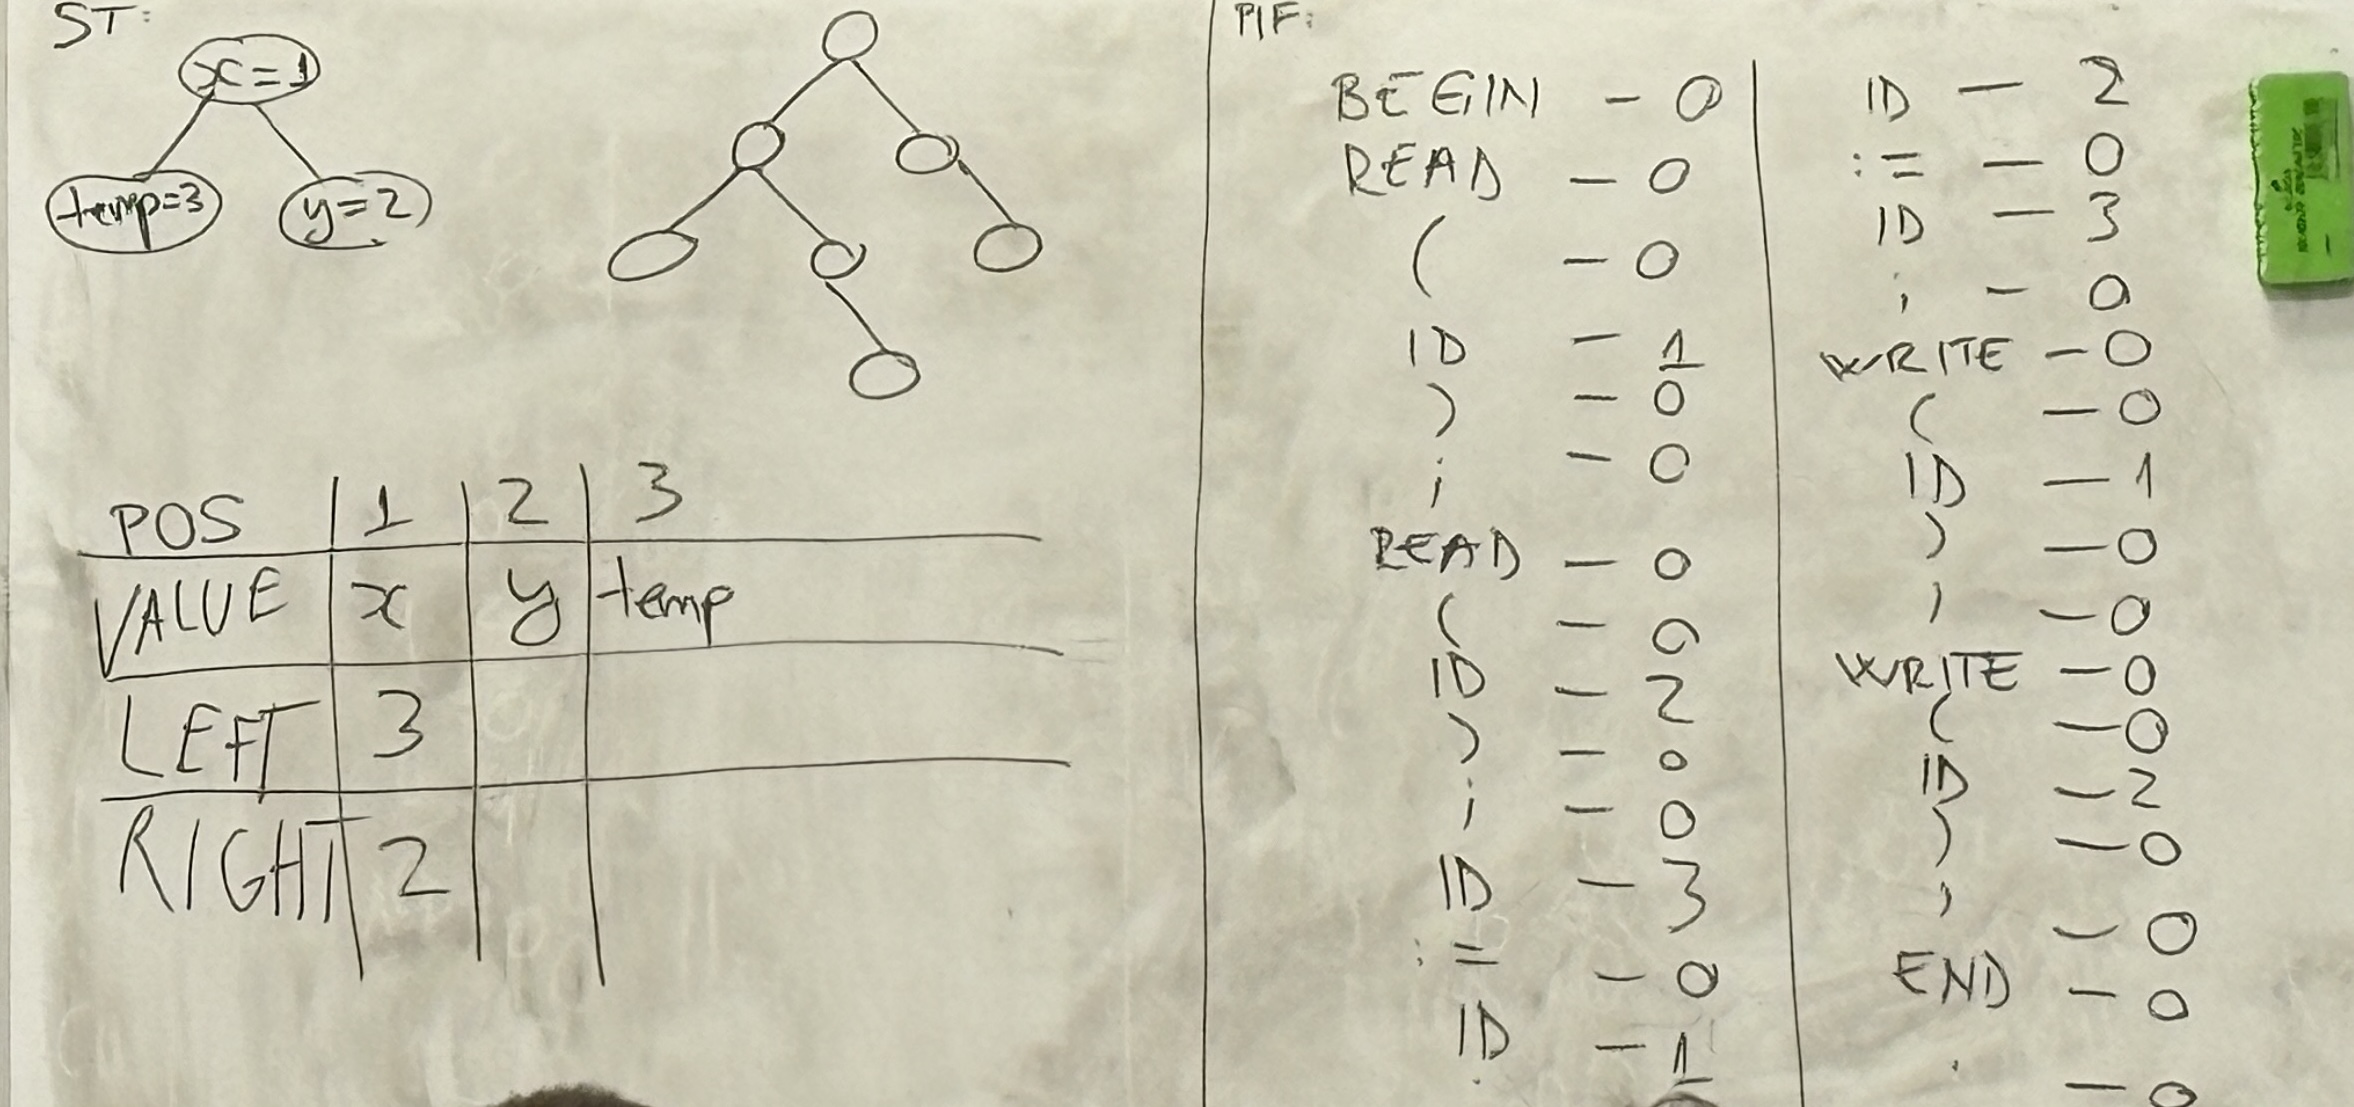 ST:
x=1
temp=3 y=2
POS 1 2 3
VALUE x y temp
LEFT 3
RIGHT 2
PIF:
BEGIN - 0
READ - 0
( - 0
ID - 1
) - 0
; - 0
READ - 0
( - 0
ID - 2
) - 0
; - 0
ID - 3
:= - 0
ID - 1
ID - 2
:= - 0
ID - 3
; - 0
WRITE - 0
( - 0
ID - 1
) - 0
; - 0
WRITE - 0
( - 0
ID - 2
) - 0
; - 0
END - 0
. - 0